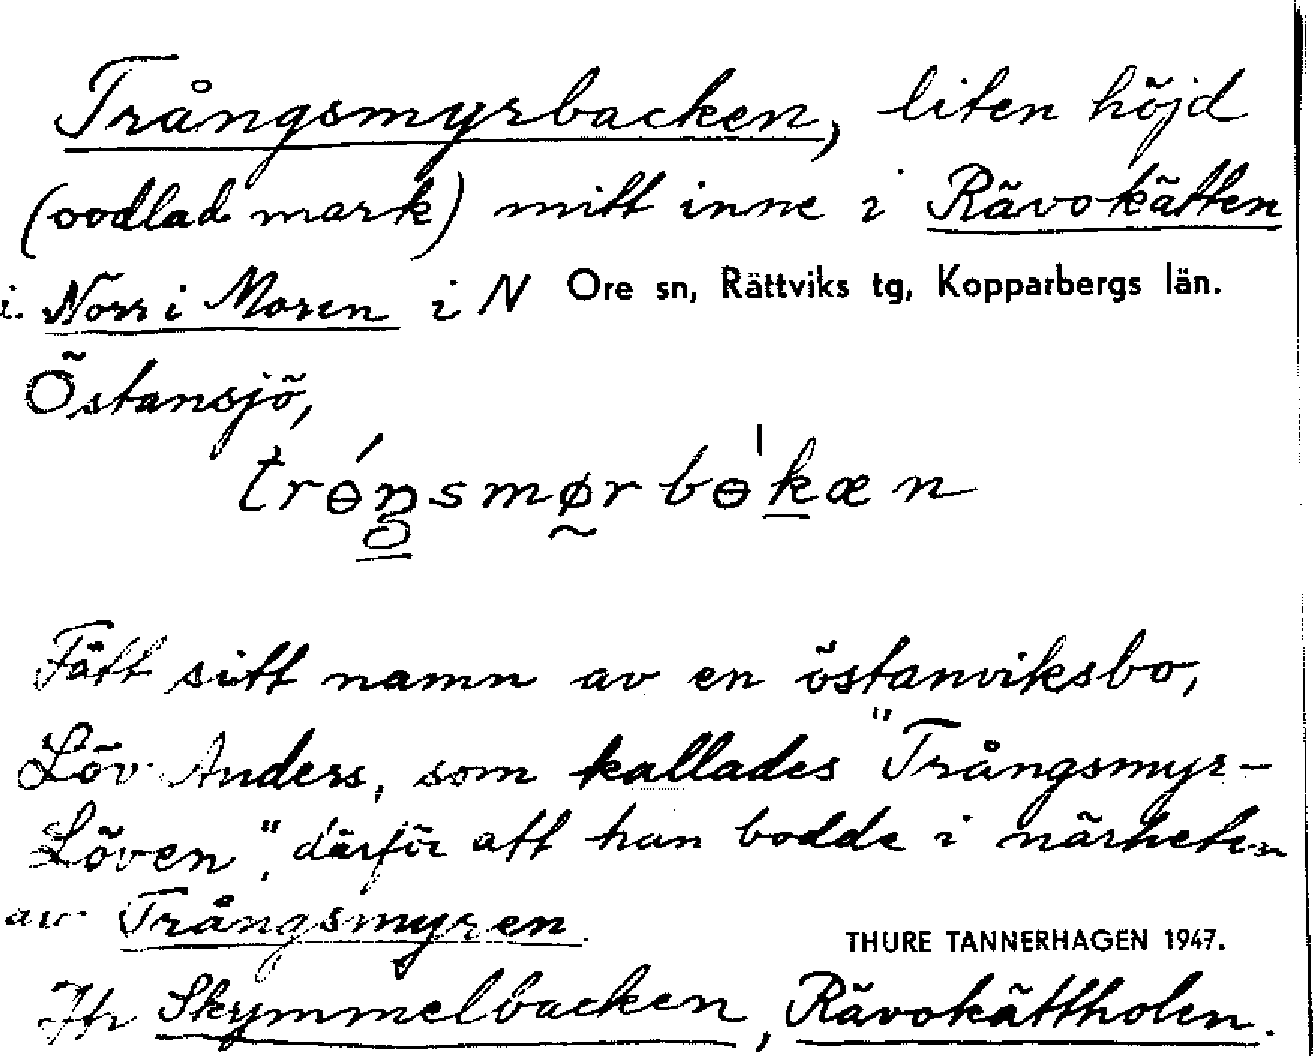 Trångsmyrbacken, liten höjd
(oodlad mark) mitt inne i Rävokätten
i. Norr i Moren i N Ore sn, Rättviks tg, Kopparbergs län.
Östansjö,
trɵ́ŋsmørbɵˈkæn
Fått sitt namn av en östanviksbo,
Löv Anders, som kallades "Trångsmyr-
Löven", därför att han bodde i närheten
av Trångsmyren
THURE TANNERHAGEN 1947.
Jfr Skymmelbacken, Rävokättholen.